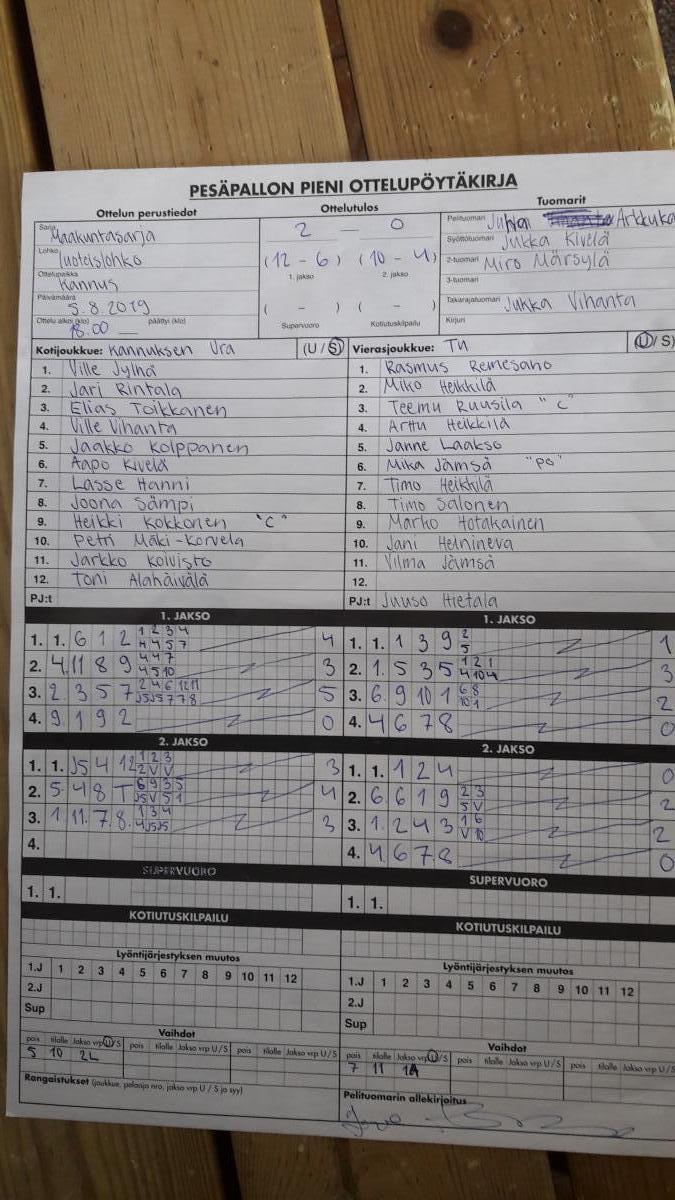 PESÄPALLON PIENI OTTELUPÖYTÄKIRJA
Ottelun perustiedot
Sarja Maakuntasarja
Lohko luoteislohko
Ottelupaikka Kannus
Päivämäärä 5.8.2019
Ottelu alkoi (klo) 18.00 päättyi (klo)
Ottelutulos
2 — 0
(12 - 6) (10 - 4)
1. jakso 2. jakso
( - ) ( - )
Supervuoro Kotiutuskilpailu
Tuomarit
Pelituomari Juhan Arkkuka
Syöttötuomari Jukka Kivelä
2-tuomari Miro Märsylä
3-tuomari
Takarajatuomari Jukka Vihanta
Kirjuri
Kotijoukkue: Kannuksen Ura (U/S)
1. Ville Jylhä
2. Jari Rintala
3. Elias Toikkanen
4. Ville Vihanta
5. Jaakko Kolppanen
6. Aapo Kivelä
7. Lasse Hanni
8. Joona Sämpi
9. Heikki Kokkonen "C"
10. Petri Mäki-Korvela
11. Jarkko Koivisto
12. Toni Alahäivälä
PJ:t
Vierasjoukkue: TU (U/S)
1. Rasmus Remesaho
2. Miko Heikkilä
3. Teemu Ruusila "C"
4. Arttu Heikkilä
5. Janne Laakso
6. Mika Jämsä "PO"
7. Timo Heikkilä
8. Timo Salonen
9. Marko Hotakainen
10. Jani Helnineva
11. Vilma Jämsä
12.
PJ:t Juuso Hietala
1. JAKSO
1. 1. 6 1 2 1 2 3 4 4
4 4 5 7
2. 4 11 8 9 4 4 7 3
4 5 10
3. 2. 3 5 7 2 4 6 12 11 5
J5 J5 7 7 8
4. 9 1 9 2 0
1. JAKSO
1. 1. 1 3 9 2 1
5
2. 1. 5 3 5 1 2 1 3
4 10 4
3. 6. 9 10 1 6 8 2
10 1
4. 4 6 7 8 0
2. JAKSO
1. 1. J5 4 12 1 2 3 3
2 V V
2. 5. 4 8 T 6 9 3 5 4
J5 V 5 1
3. 1 11. 7. 8. 1 3 4 3
4 J5 J5
4.
2. JAKSO
1. 1. 1 2 4 0
2. 6. 6 1 9 2 3 2
5 V
3. 1. 2 4 3 1 6 2
V 10
4. 4. 6 7 8 0
SUPERVUORO
1. 1.
SUPERVUORO
1. 1.
KOTIUTUSKILPAILU
KOTIUTUSKILPAILU
Lyöntijärjestyksen muutos
1.J 1 2 3 4 5 6 7 8 9 10 11 12
2.J
Sup
Lyöntijärjestyksen muutos
1.J 1 2 3 4 5 6 7 8 9 10 11 12
2.J
Sup
Vaihdot
pois tilalle Jakso vrp U/S pois tilalle Jakso vrp U/S pois tilalle Jakso vrp U/S
5 10 2L
Rangaistukset (joukkue, pelaaja nro, jakso vrp U / S ja syy)
Vaihdot
pois tilalle Jakso vrp U/S pois tilalle Jakso vrp U/S pois tilalle Jakso vrp U/S
7 11 1A
Pelituomarin allekirjoitus